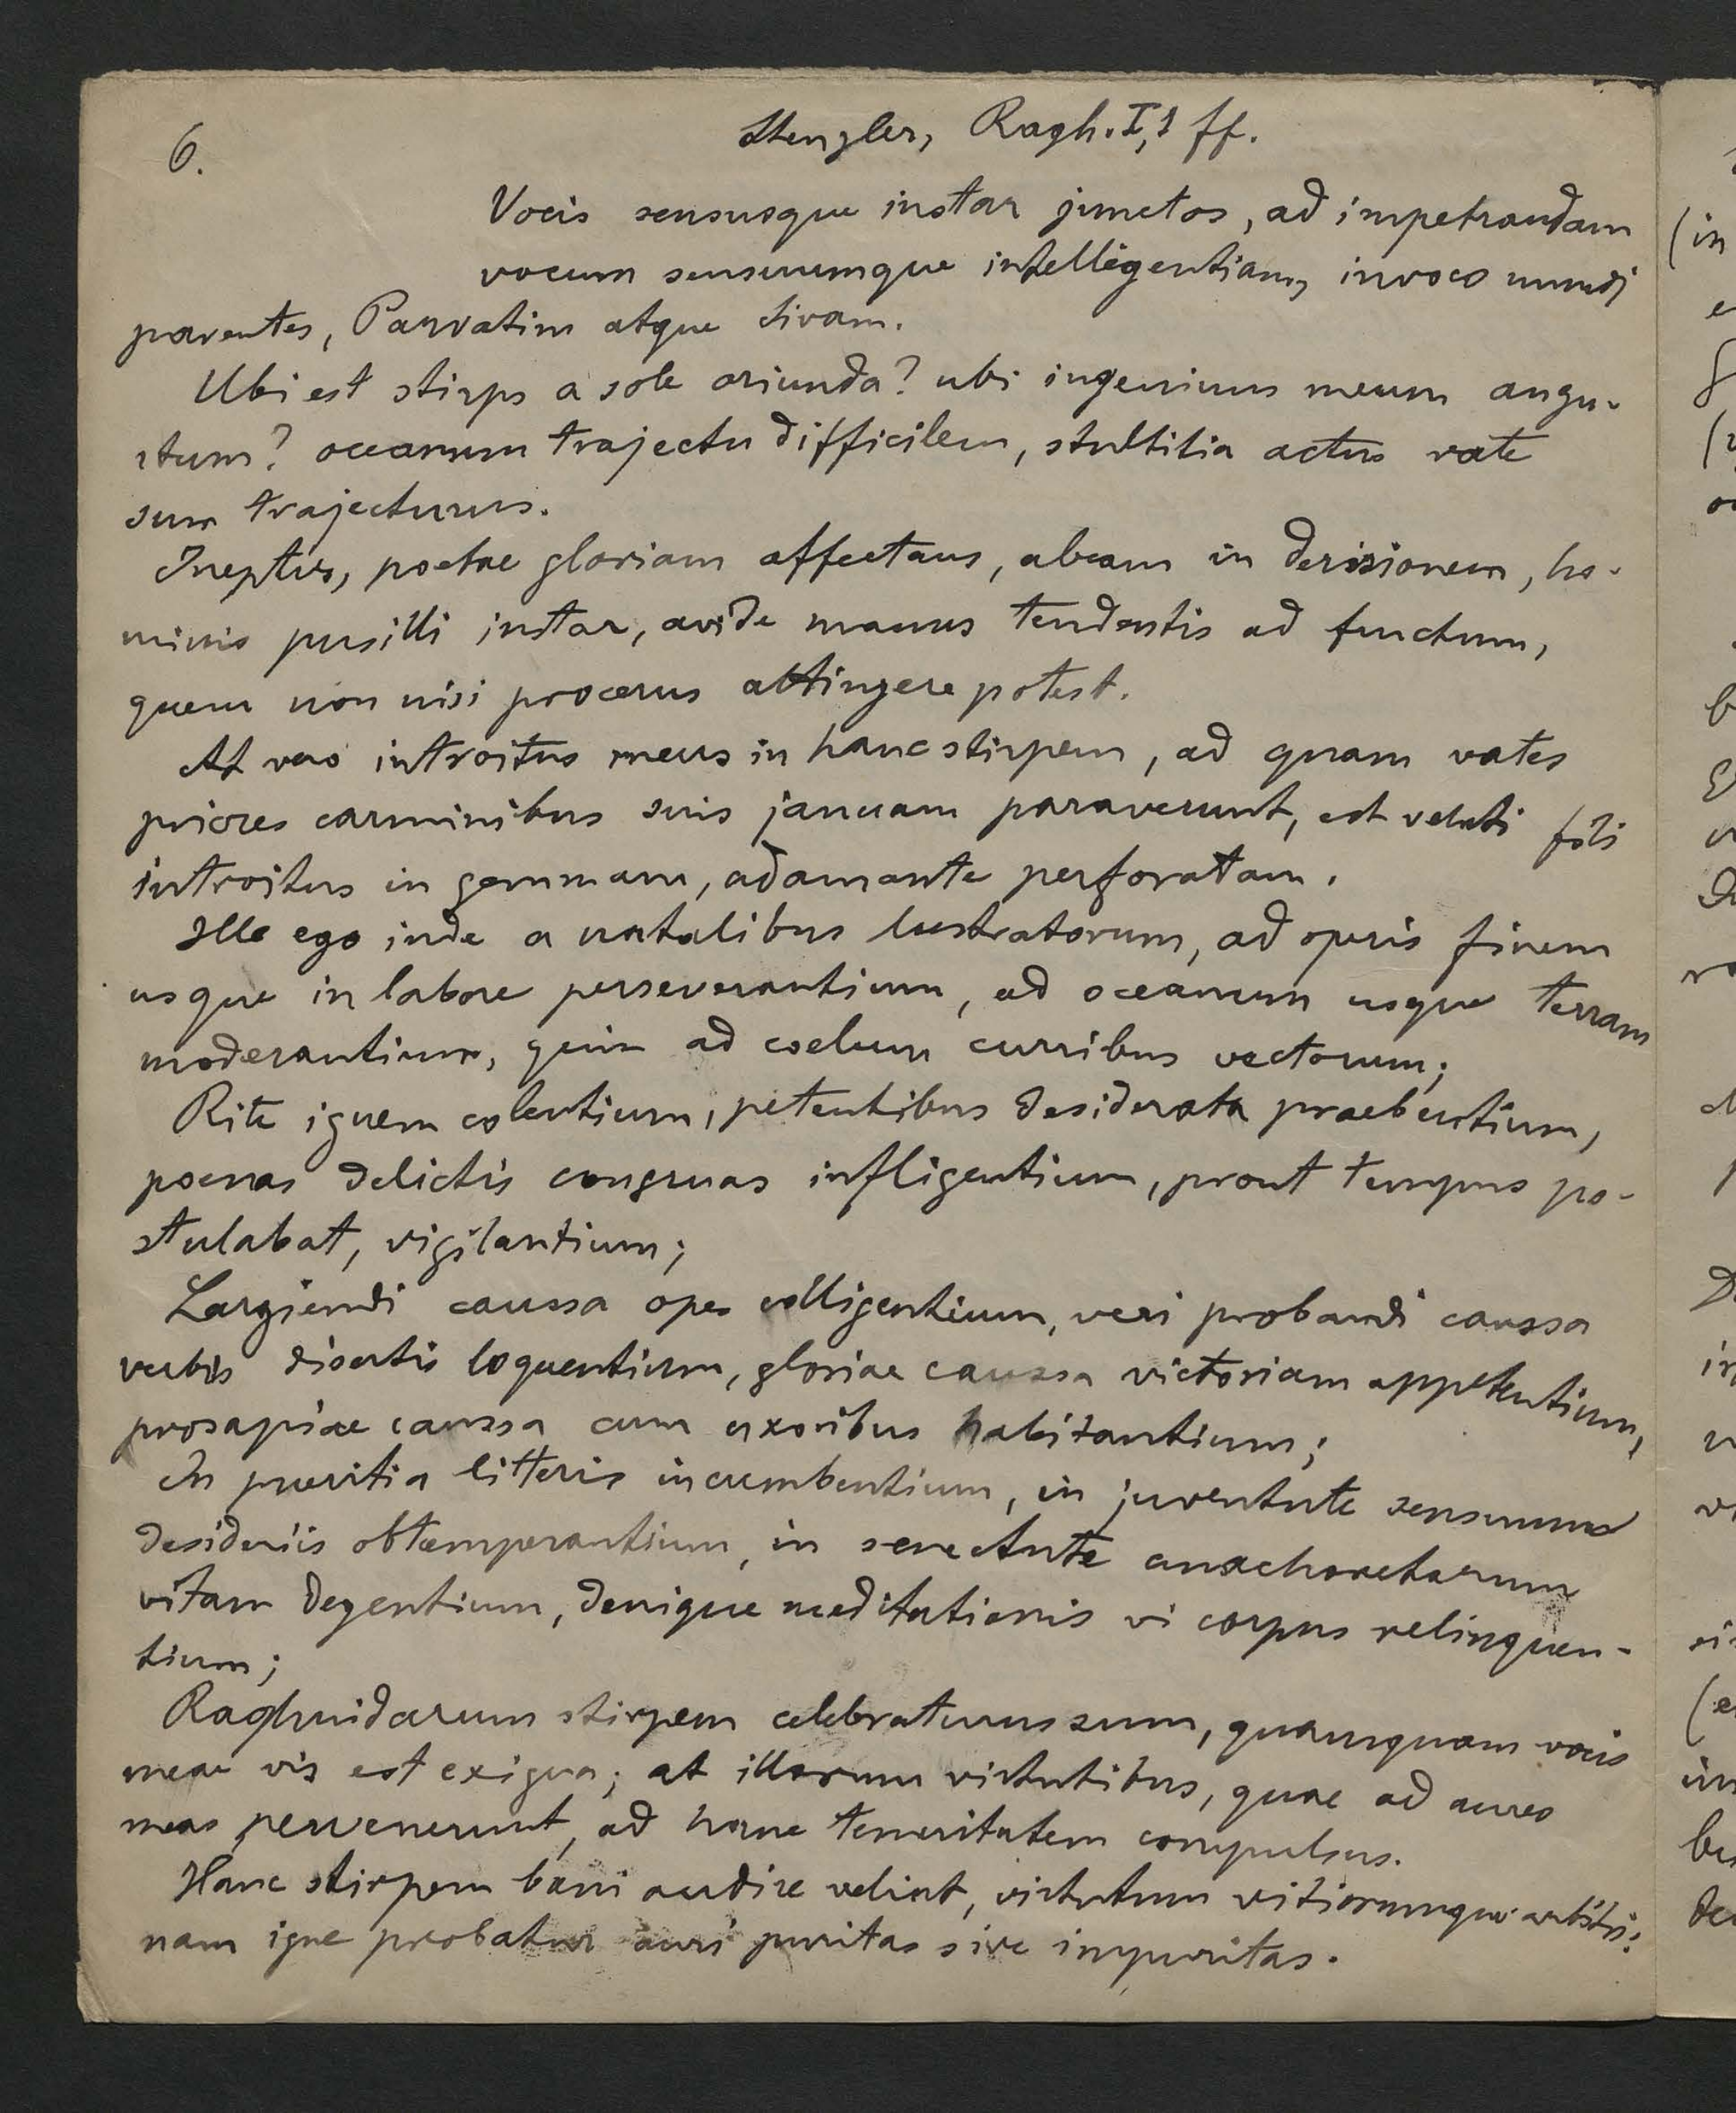 6.
Stenzler, Ragh. I,1 ff.
Vocis sensusque instar junctos, ad impetrandam
vocum sensuumque intelligentiam, invoco mundi
parentes, Parvatim atque Sivam.
Ubi est stirps a sole oriunda? ubi ingenium meum angu-
stum? oceanum trajectu difficilem, stultitia actus rate
sum trajecturus.
Ineptus, poetae gloriam affectans, abeam in derisionem, ho-
minis pusilli instar, avide manus tendentis ad fructum,
quem non nisi procerus attingere potest.
At vero introitus meus in hanc stirpem, ad quam vates
priores carminibus suis januam paraverunt, est veluti fili
introitus in gemmam, adamante perforatam.
Ille ego inde a natalibus lustratorum, ad operis finem
usque in labore perseverantium, ad oceanum usque terram
moderantium, quin ad coelum curribus vectorum;
Rite ignem colentium, petentibus desiderata praebentium,
poenas delictis congruas infligentium, prout tempus po-
stulabat, vigilantium;
Largiendi caussa opes colligentium, veri probandi caussa
verbis disertis loquentium, gloriae caussa victoriam appetentium,
prosapiae caussa cum uxoribus habitantium;
In pueritia litteris incumbentium, in juventute sensuum
desideriis obtemperantium, in senectute anachoretarum
vitam degentium, denique meditationis vi corpus relinquen-
tium;
Raghuidarum stirpem celebraturus sum, quamquam vocis
meae vis est exigua; at illorum virtutibus, quae ad aures
meas pervenerunt, ad hanc temeritatem compulsus.
Hanc stirpem boni audire velint, virtutum vitiorumque
nam igne probatur auri puritas sive impuritas.